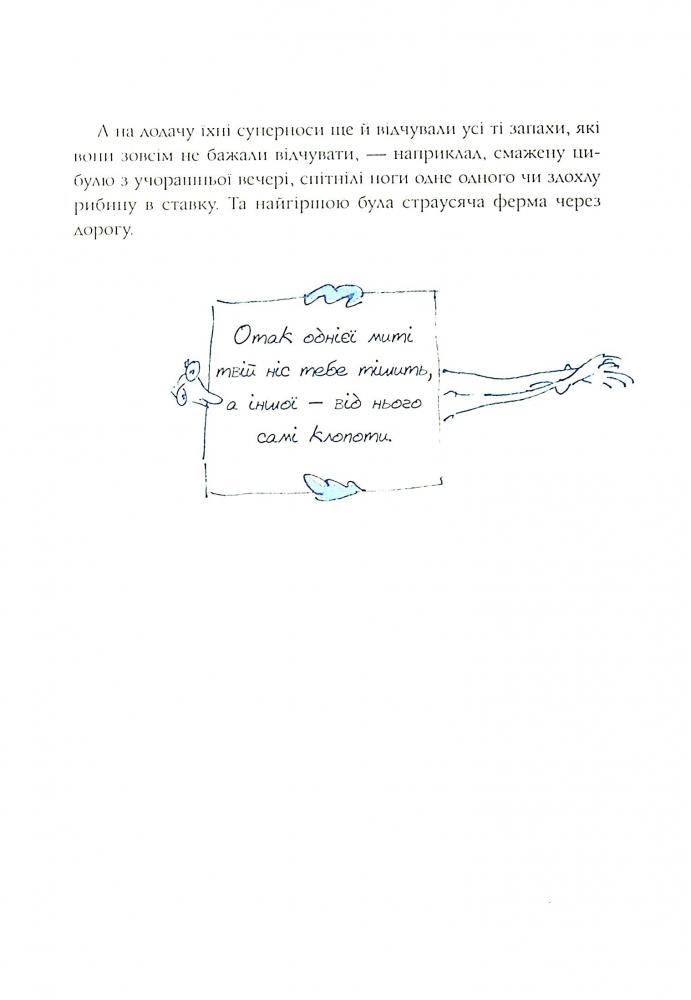 А на додачу їхні суперноси ще й відчували усі ті запахи, які
вони зовсім не бажали відчувати, — наприклад, смажену ци-
булю з учорашньої вечері, спітнілі ноги одне одного чи здохлу
рибину в ставку. Та найгіршою була страусяча ферма через
дорогу.
Отак однієї миті
твій ніс тебе тішить,
а іншої – від нього
самі клопоти.